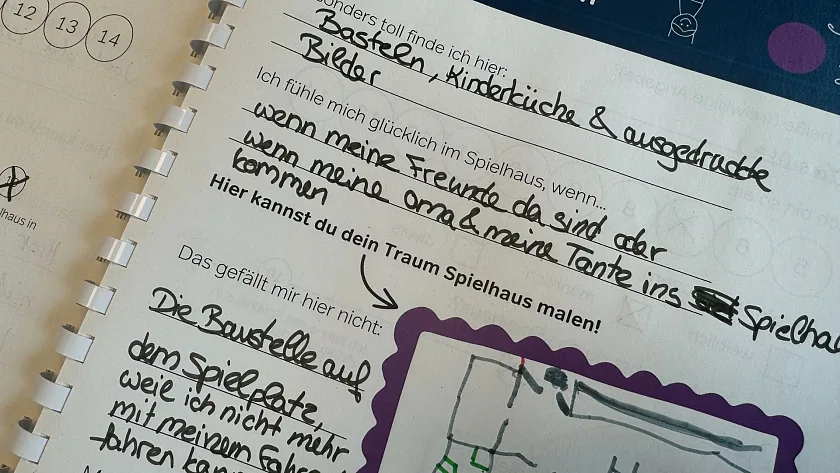 12 13 14
sonders toll finde ich hier:
Basteln, Kinderküche & ausgedruckte
Bilder
Ich fühle mich glücklich im Spielhaus, wenn...
wenn meine Freunde da sind oder
wenn meine oma & meine Tante ins Spielhau
kommen
lhaus in
Hier kannst du dein Traum Spielhaus malen!
Das gefällt mir hier nicht:
Die Baustelle auf
dem Spielplatz,
weil ich nicht mehr
mit meinem
fahren